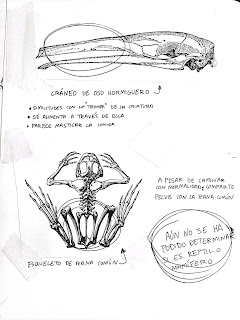 CRÁNEO DE OSO HORMIGUERO
• SIMILITUDES CON LA "TROMPA" DE LA CRIATURA
• SE ALIMENTA A TRAVÉS DE ELLA
• PARECE MASTICAR LA COMIDA
A PESAR DE CAMINAR
CON NORMALIDAD, COMPARTE
PELVIS CON LA RANA COMÚN
AÚN NO SE HA
PODIDO DETERMINAR
SI ES REPTIL O
MAMÍFERO
ESQUELETO DE RANA COMÚN